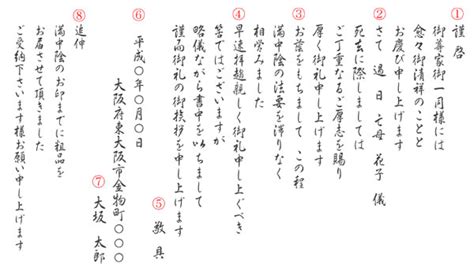 ① 謹啓
御尊家御一同様には
愈々御清祥のことと
お慶び申し上げます
② さて 過日 亡母 花子 儀
死去に際しましては
ご重なるご厚志を賜り
厚く御礼申し上げます
③ お蔭をもちまして この程
満中陰の法要を滞りなく
相営みました
④ 早速拝趨親しく御礼申し上ぐべき
筈でございますが
略儀ながら書中を以ちまして
謹高御礼の御挨拶を申し上げます
⑤ 敬具
⑥ 平成〇年〇月〇日
大阪府東大阪市金物町〇〇〇
⑦ 大坂 太郎
⑧ 追伸
満中陰のお印までに粗品を
お届させて頂きました
ご受納下さいます様お願い申し上げます